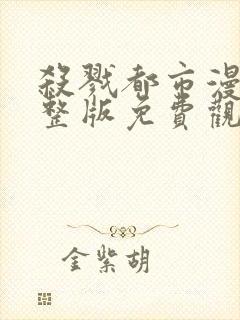 殺戮都市漫
整版免費觀
金紫胡